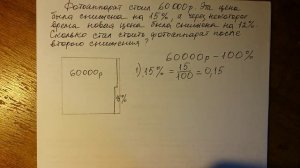 Фотоаппарат стоил 60000р. Эта цена
была снижена на 15%, а через некоторое
время новая цена была снижена на 12%.
Сколько стал стоить фотоаппарат после
второго снижения?
60000р – 100%
1) 15% = 15/100 = 0,15
60000р
15%